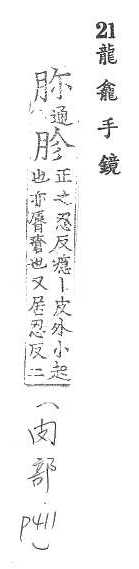 21龍龕手鏡
通胗
正之忍反癮丨皮外小起
也亦脣瘡也又居忍反二
(肉部
p411)